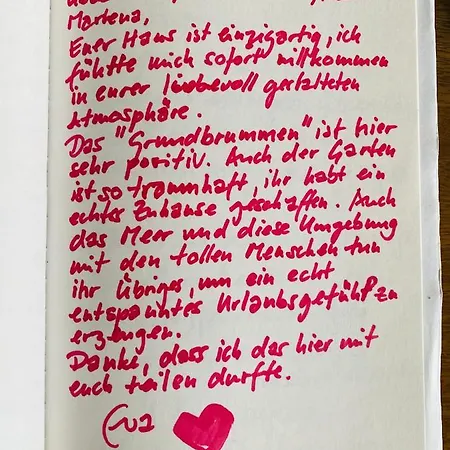 Martena,
Euer Haus ist einzigartig, ich
fühlte mich sofort willkommen
in eurer liebevoll gestalteten
Atmosphäre.
Das "Grundbrummen" ist hier
sehr positiv. Auch der Garten
ist so traumhaft, ihr habt ein
echtes Zuhause geschaffen. Auch
das Meer und diese Umgebung
mit den tollen Menschen tun
ihr Übriges, um ein echt
entspanntes Urlaubsgefühl zu
erzeugen.
Danke, dass ich das hier mit
euch teilen durfte.
Eva